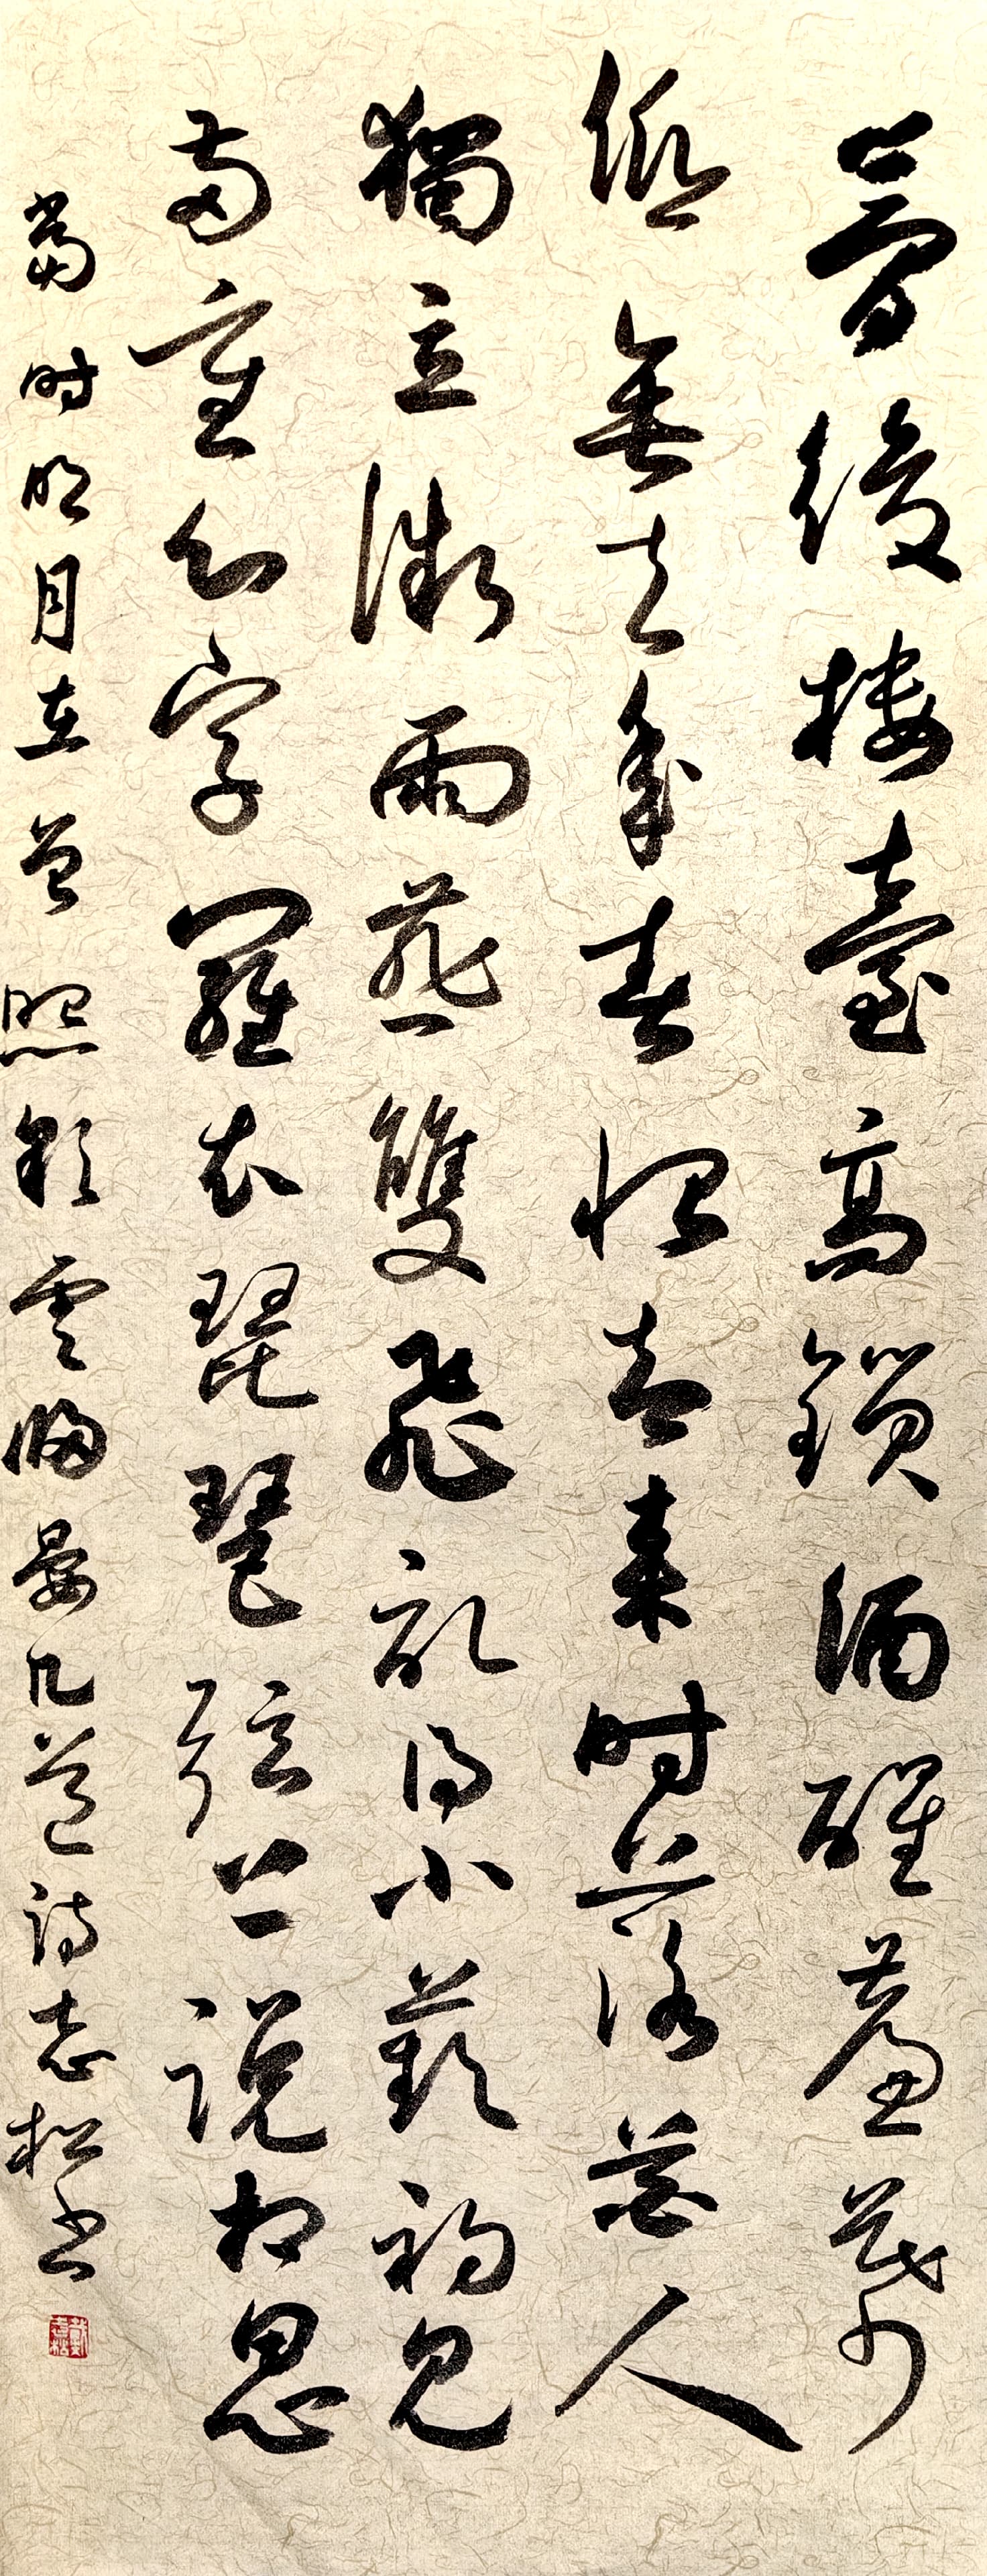 夢後樓臺高鎖酒醒簾幕
低垂去年春恨却来时落花人
獨立微雨燕雙飛記得小蘋初見
兩重心字羅衣琵琶弦上説相思
當时明月在曾照彩雲歸晏几道詩志松書